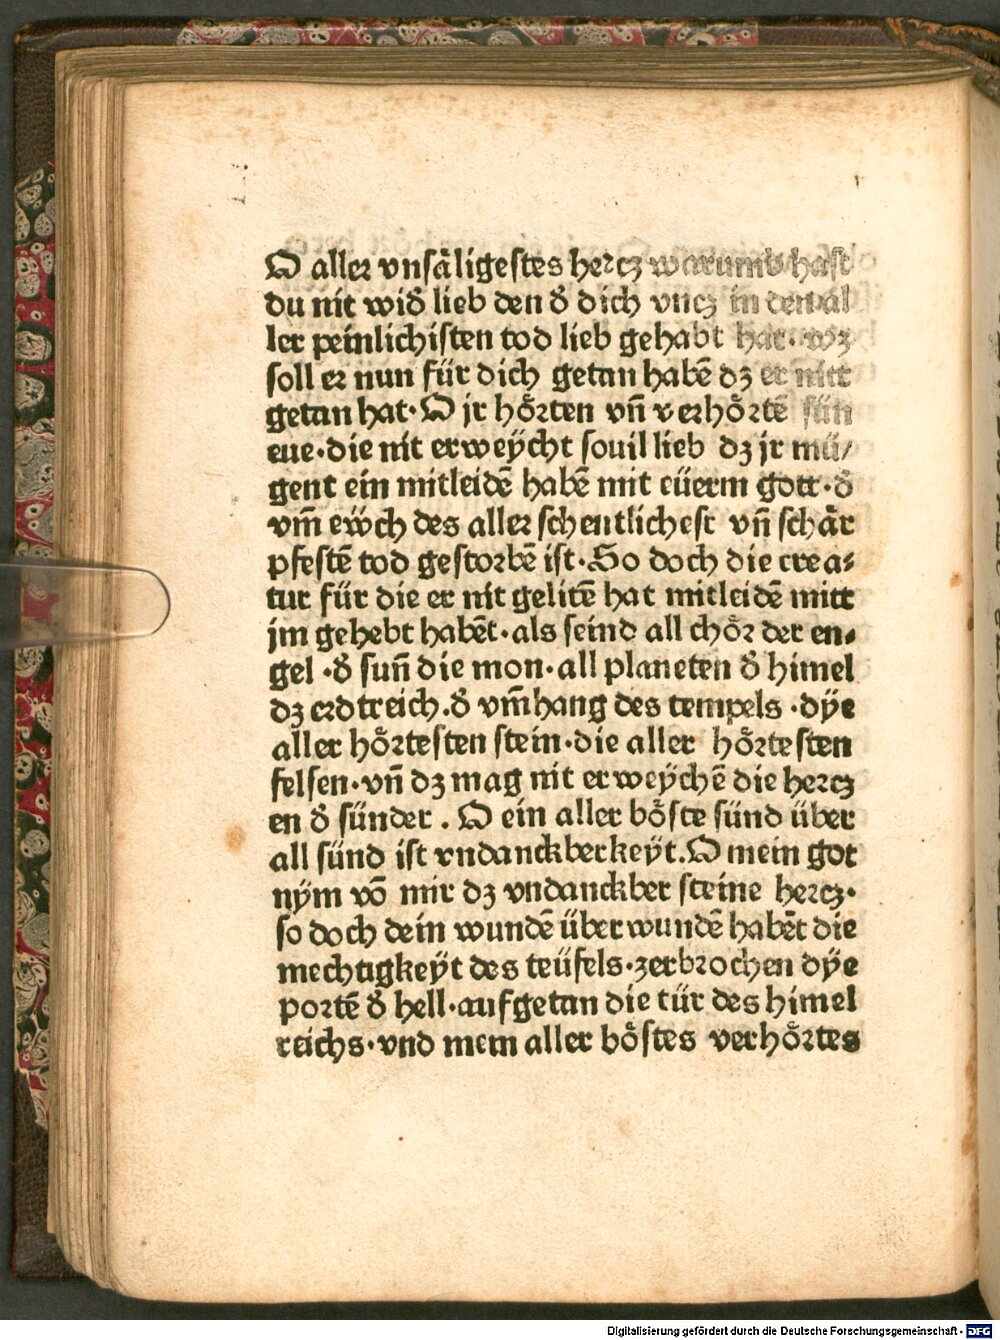 O aller vnsäligestes hercz warumb hast
du nit wid̕ lieb den d̕ dich vncz in den al
ler peinlichisten tod lieb gehabt hat· wz
soll er nun für dich getan habē dz er nitt
getan hat· O jr hoͤrten vn̄ verhoͤrtē sün
eue·die nit erweÿcht souil lieb dz jr mü/
gent ein mitleidē habē mit eüerm gott·d̕
vm̄ eẅch des aller schentlichest vn̄ schär
pfestē tod gestorbē ist·So doch die crea⸗
tur für die er nit gelitē hat mitleidē mitt
jm gehebt habēt·als seind all choͤr der en⸗
gel ·d̕ sun̄ die mon·all planeten d̕ himel
dz erdtreich.d̕ vm̄hang des tempels ·dÿe
aller hoͤrtesten stein·die aller hoͤrtesten
felsen·vn̄ dz mag nit erweÿchē die hercz
en d̕ sünder . O ein aller boͤste sünd über
all sünd ist vndanckberkeÿt.O mein got
nÿm vō mir dz vndanckber steine hercz·
so doch dein wundē überwundē habēt die
mechtigkeÿt des teüfels·zerbrochen dÿe
portē d̕ hell·aufgetan die tür des himel
reichs·vnd mein aller boͤstes verhoͤrtes
Digitalisierung gefördert durch die Deutsche Forschungsgemeinschaft - DFG